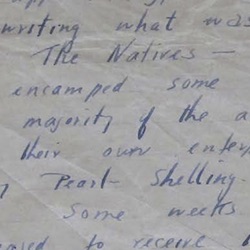 writing what was
The Natives —
encamped some
majority of the a
their own enter
Pearl- Shelling-
Some weeks
to receive